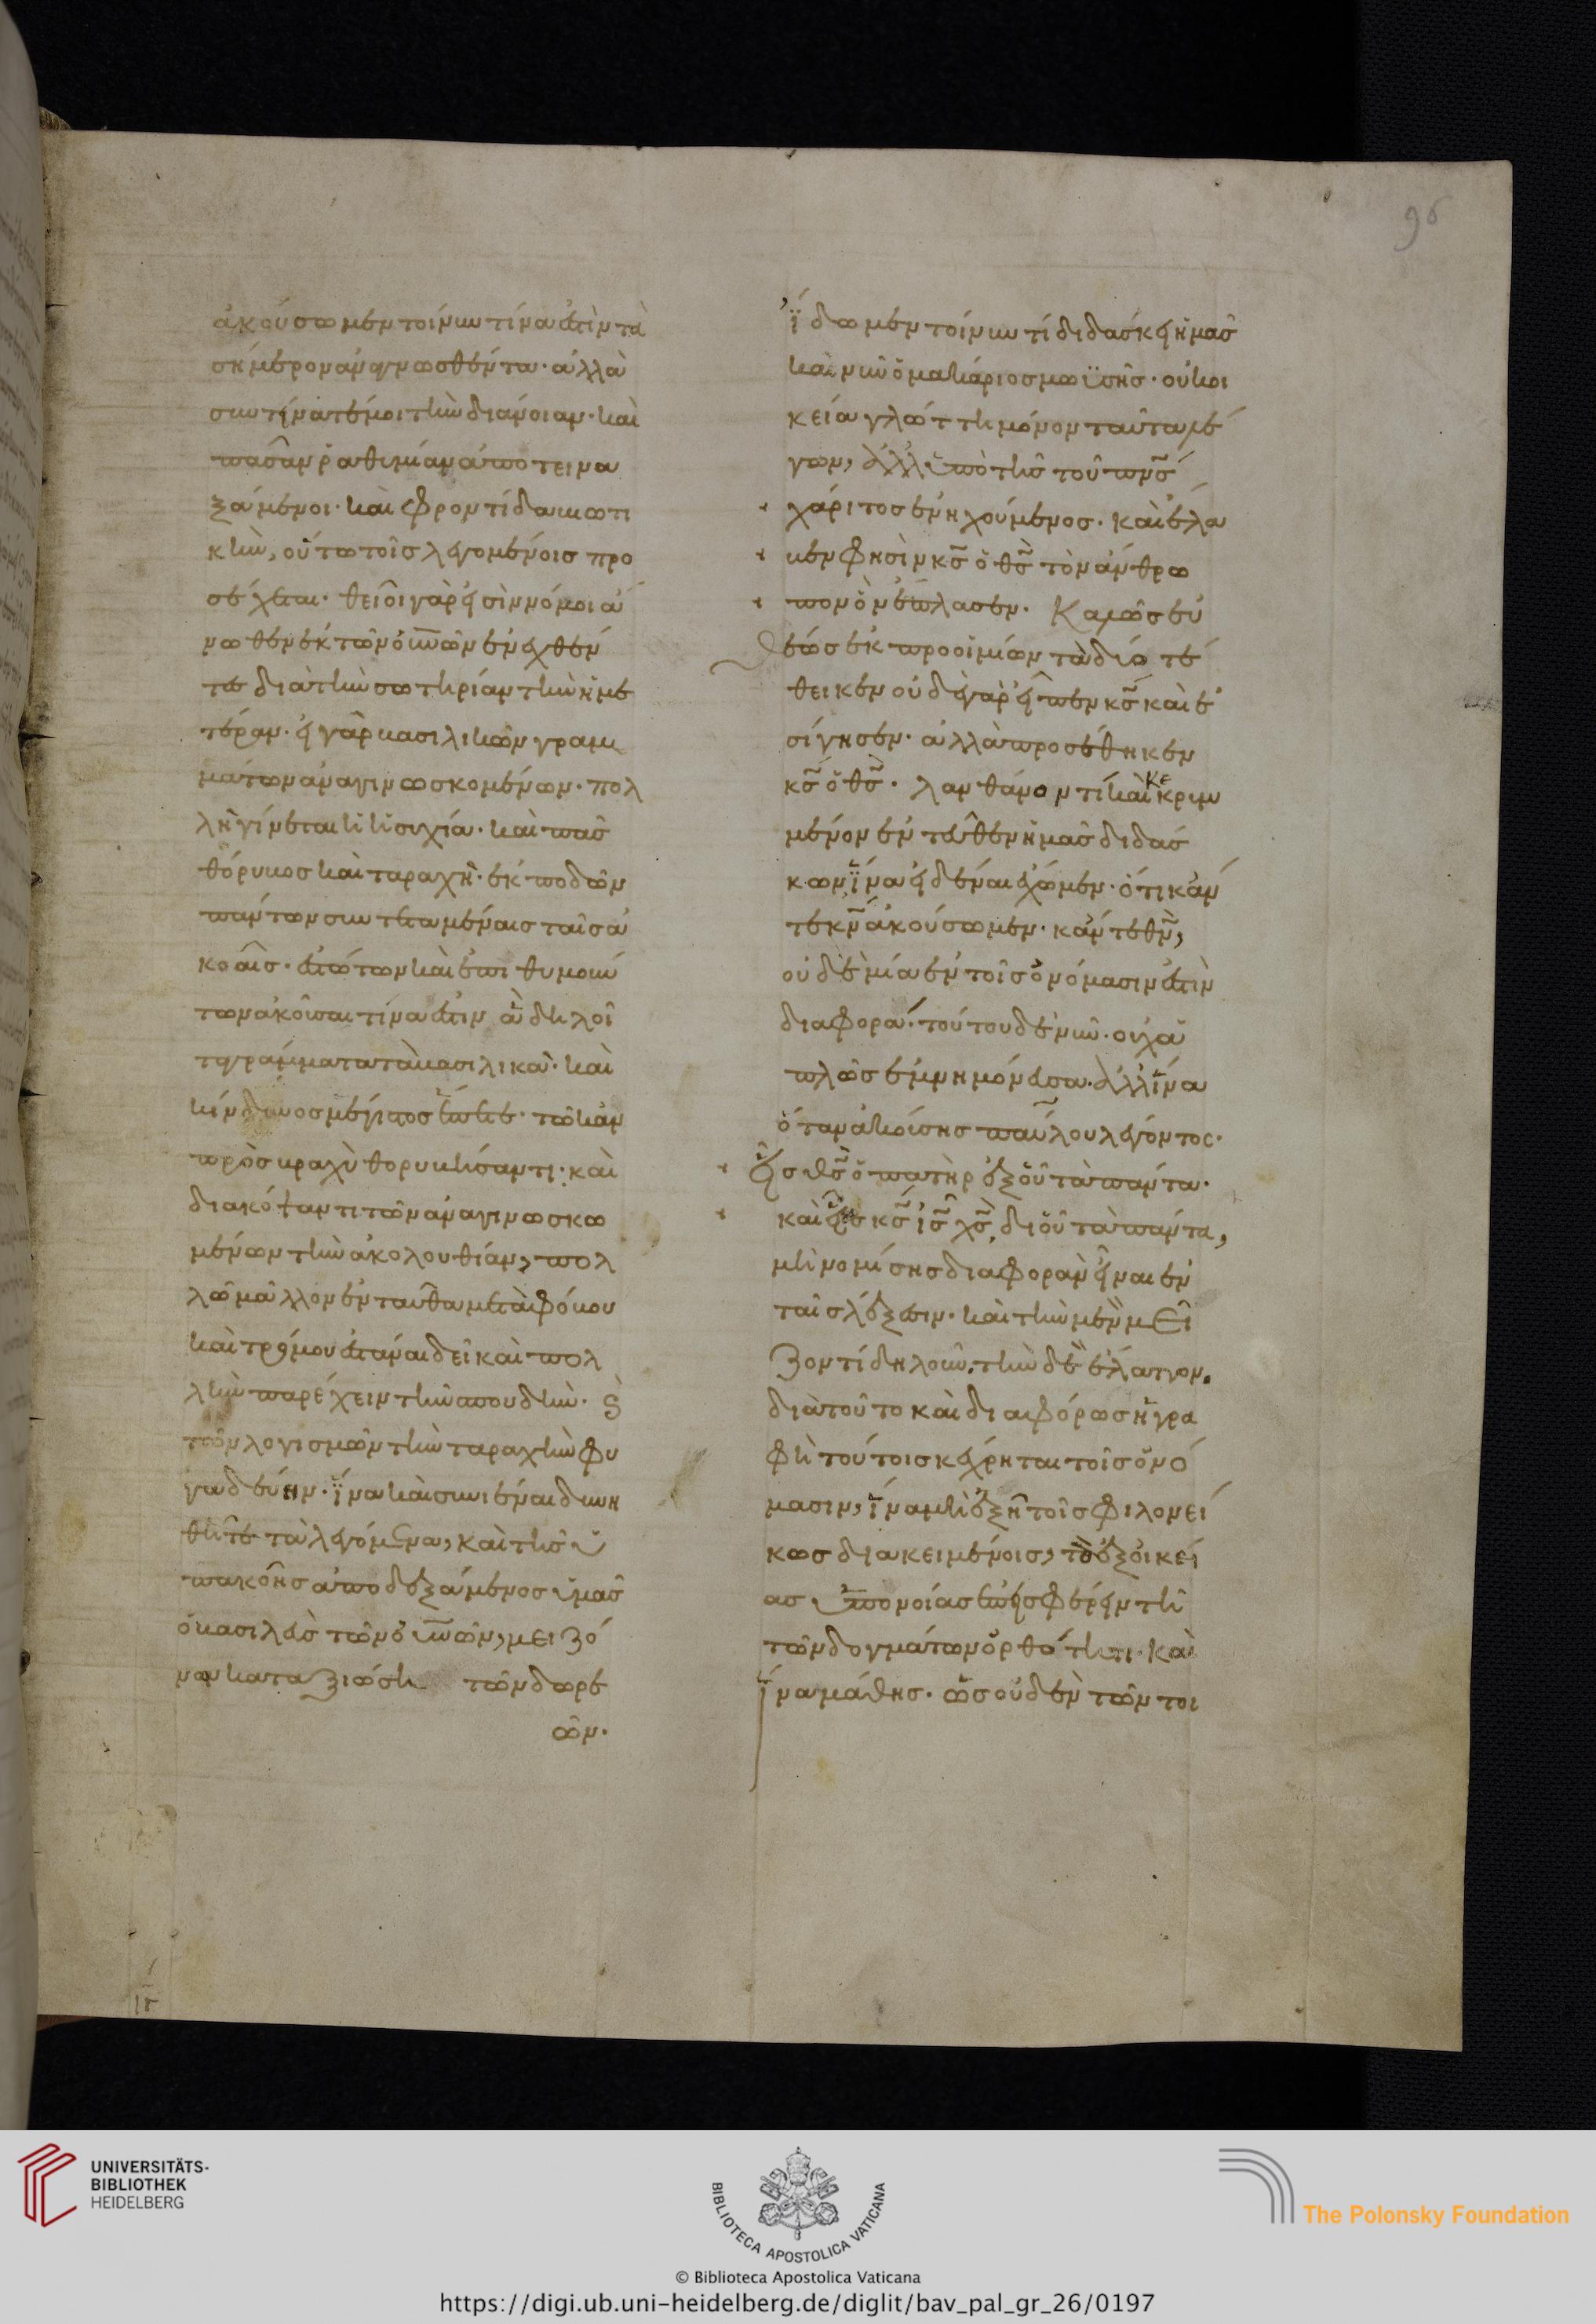 96
ἀκούσωμεν τοίνυν τίνα ἐστὶν τὰ
σήμερον ἀναγνωσθέντα· ἀλλὰ
συντείνατέ μοι τὴν διάνοιαν· καὶ
πᾶσαν ῥαθυμίαν ἀποτεινα
ξάμενοι· καὶ φροντίδα βιωτι
κὴν, οὕτω τοῖς λεγομένοις προ
σέχετε· θεῖοι γάρ εἰσιν νόμοι ἄ
νωθεν ἐκ τῶν οὐνῶν ἐνεχθέν
τες διὰ τὴν σωτηρίαν τὴν ἡμε
τέραν· εἰ γὰρ βασιλικῶν γραμ
μάτων ἀναγινωσκομένων· πολ
λὴ γίνεται ἡ ἡσυχία· καὶ πᾶς
θόρυβος καὶ ταραχὴ· ἐκποδῶν
πάντων συντεταμέναις ταῖς ἀ
κοαῖς· ἑστώτων καὶ ἐπιθυμούν
των ἀκοῦσαι τίνα ἐστιν ἃ δηλοῖ
τὰ γράμματα τὰ βασιλικά· καὶ
κίνδυνος μέγιστος ἐπικειται τῶ κἂν
πρὸς βραχὺ θορυβήσαντι· καὶ
διακόψαντι τῶν ἀναγινωσκο
μένων τὴν ἀκολουθίαν, πολ
λῶ μᾶλλον ἐνταῦθα μετὰ φόβου
καὶ τρόμου ἑστάναι δεῖ καὶ πολ
λὴν παρέχειν τὴν σπουδὴν· καὶ
τῶν λογισμῶν τὴν ταραχὴν φυ
γαδεύειν· ἵνα καὶ συνιέναι δυνη
θῆτε τὰ λεγόμενα, καὶ τῆς ὑ
πακοῆς ἀποδεξάμενος ὑμᾶς
ὁ βασιλεὺς τῶν οὐνῶν, μειζό
νων καταξιώση τῶν δωρε
ῶν.
ἴδωμεν τοίνυν τί διδάσκει ἡμᾶς
καὶ νῦν ὁ μακάριος μωϋσῆς· οὐκ οἰ
κεία γλώττη μόνον ταῦτα λέ
γων, ἀλλ' ὑπὸ τῆς τοῦ πνς
χάριτος ἐνηχούμενος· καὶ ἔλα
βεν φησὶν κς ὁ θς τὸν ἄνθρω
πον ὃν ἔπλασεν. Καλῶς εὐ
θέως ἐκ προοιμίων τὰ δύο τέ
θεικεν οὐδὲ γὰρ εἶπεν κς καὶ ἐ
σίγησεν· ἀλλὰ προσέθηκεν
κς ὁ θς· λανθάνον τί καὶ κεκριμ
μένον ἐνταῦθεν ἡμᾶς διδάσ
κων ἵνα εἰδέναι ἔχωμεν· ὅτι κάν
τε κν ἀκούσωμεν· κάν τε θν,
οὐδὲ μία ἐν τοῖς ὀνόμασιν ἐστὶν
διαφορά· τούτου δὲ νῦν· οὐχ ἁ
πλῶς ἐμνημόνευσα· ἀλλ' ἵνα
ὅταν ἀκούσης παύλου λέγοντος·
εἷς θς ὁ πατὴρ ἐξ οὗ τὰ πάντα·
καὶ εἷς κς ις χς, δι' οὗ τὰ πάντα,
μὴ νομίσης διαφορὰν εἶναι ἐν
ταῖς λέξεσιν· καὶ τὴν μὲν μεῖ
ζον τί δηλοῦν, τὴν δὲ ἔλαττον.
διὰ τοῦτο καὶ διαφόρως ἡ γρα
φὴ τούτοις κέχρηται τοῖς ὀνό
μασιν, ἵνα μὴ ἐξῆ τοῖς φιλονεί
κως διακειμένοις, τὸ ἐξ οἰκεί
ας ὑπονοίας ἐπεισφέρειν τῆ
τῶν δογμάτων ὀρθότητι· καὶ
ἵνα μάθης· ὡς οὐδὲν τῶν τοι
UNIVERSITÄTS-
BIBLIOTHEK
HEIDELBERG
BIBLIOTECA APOSTOLICA VATICANA
The Polonsky Foundation
© Biblioteca Apostolica Vaticana
https://digi.ub.uni-heidelberg.de/diglit/bav_pal_gr_26/0197